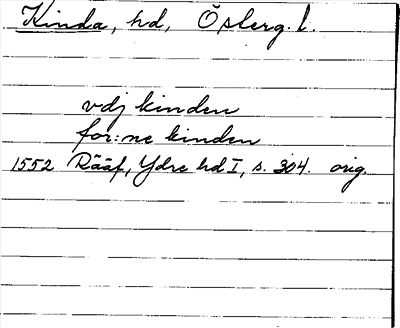 Kinda, hd, Österg. l.
vdj kinden
for: ne kinden
1552 Rääf, Ydre hd I, s. 304. orig.